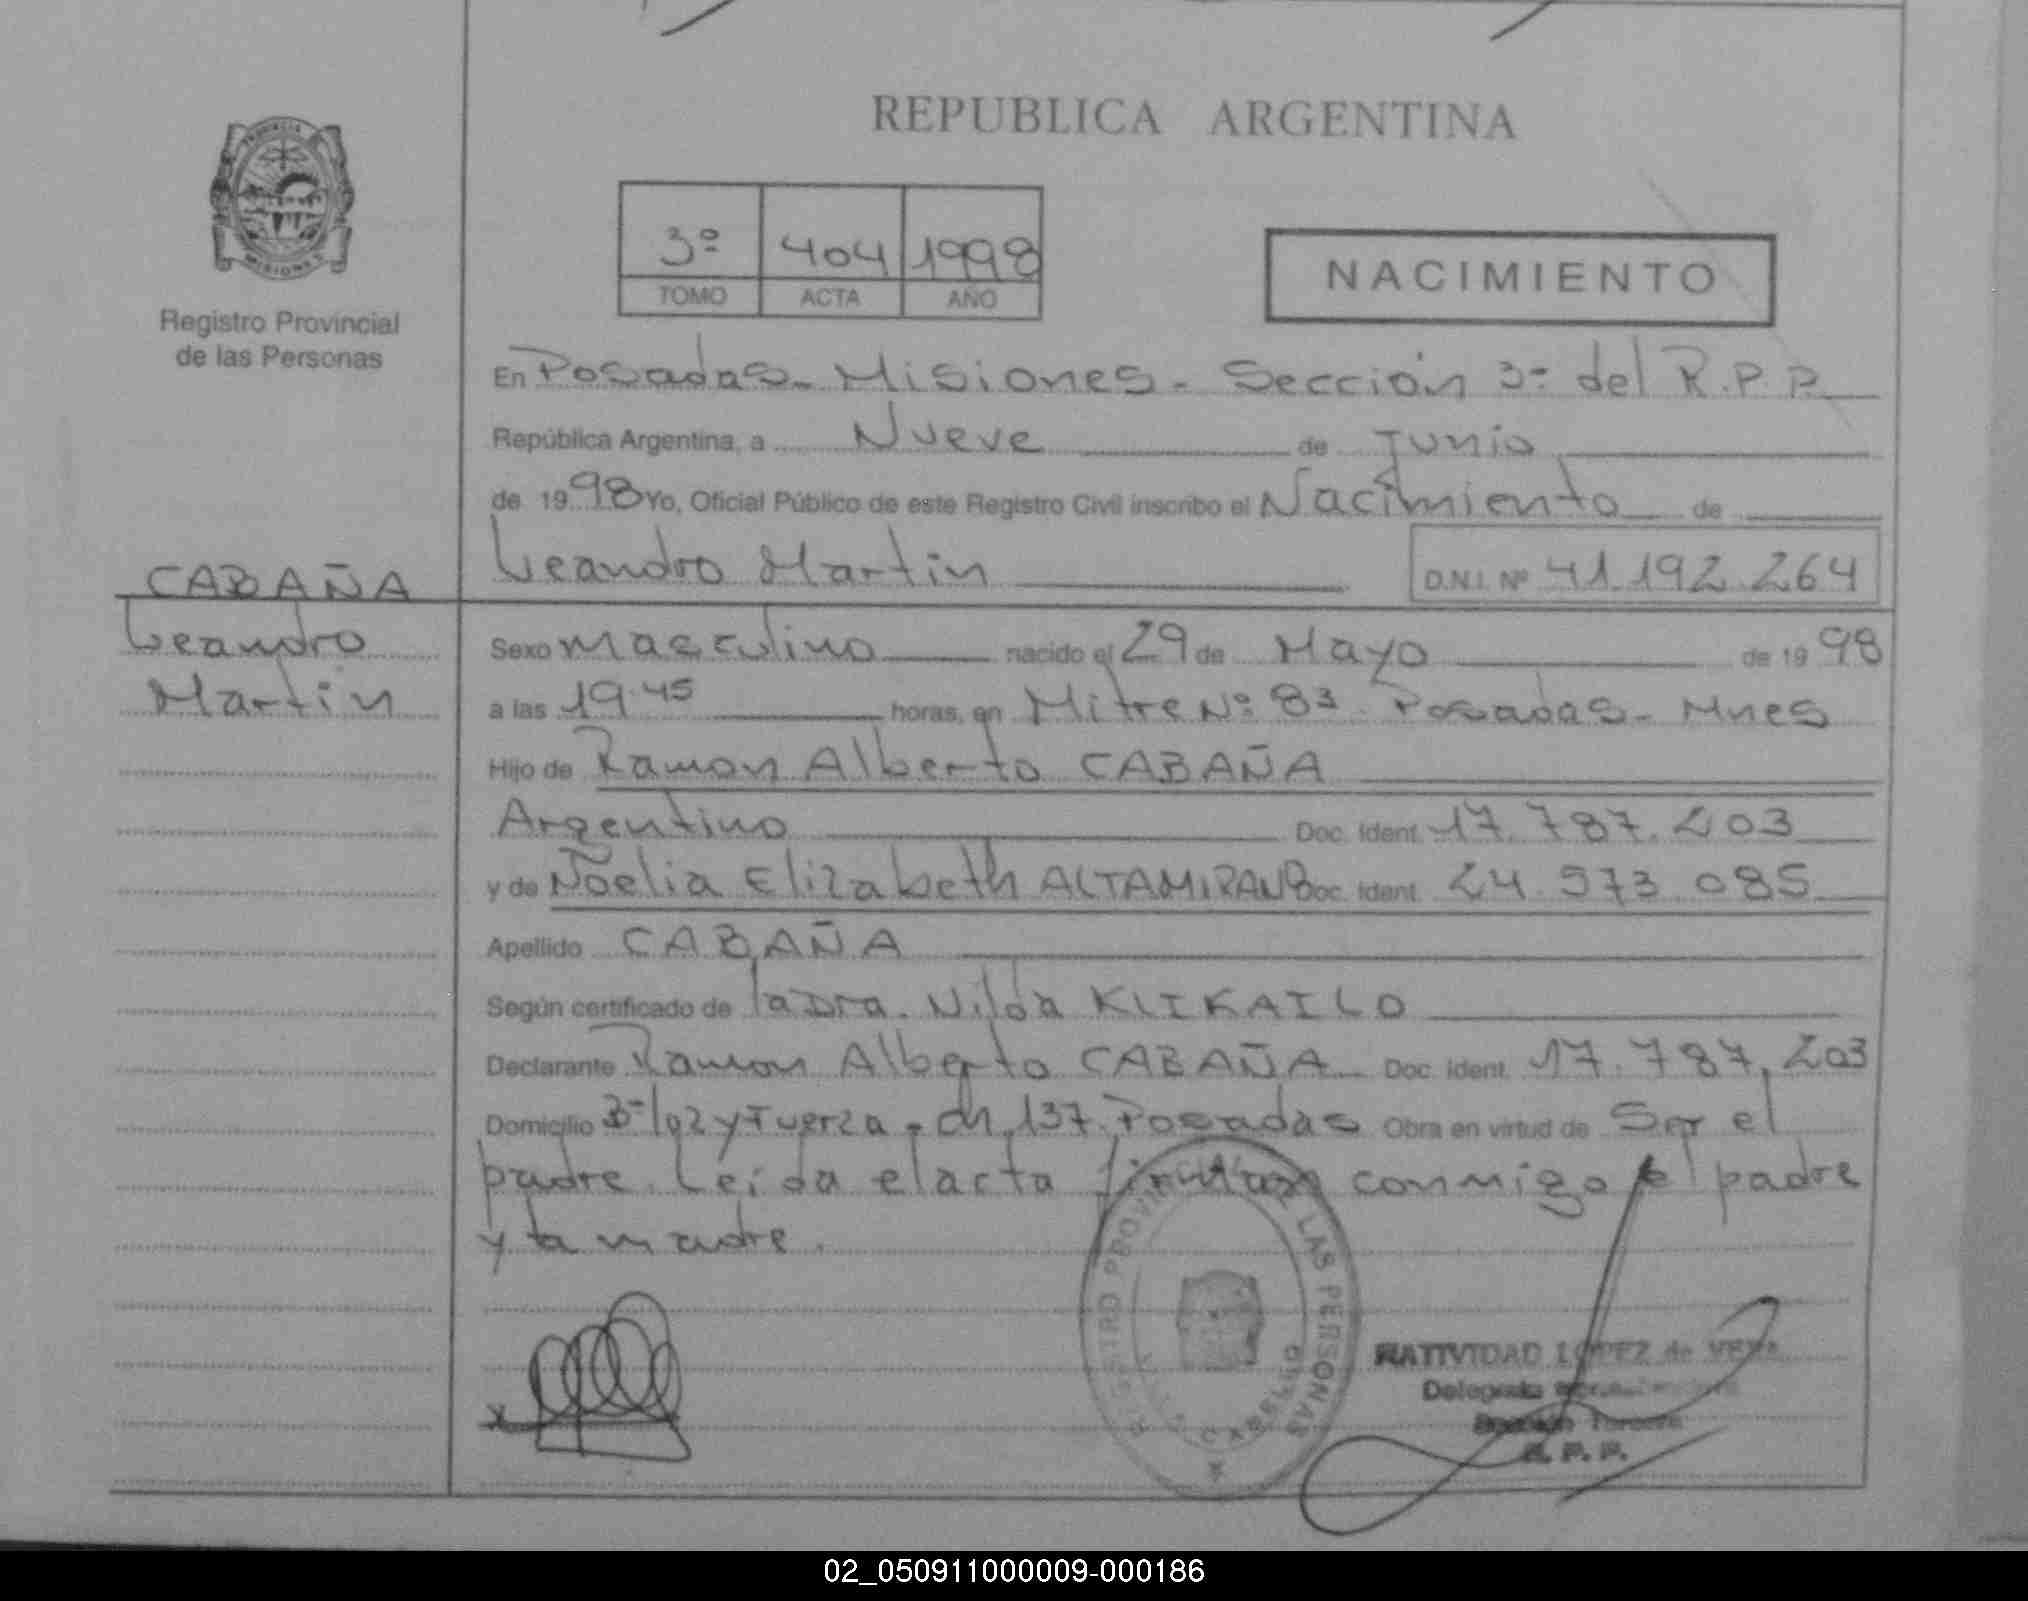 REPUBLICA ARGENTINA
PROVINCIA
MISIONES
3º 404 1998
TOMO ACTA AÑO
NACIMIENTO
Registro Provincial
de las Personas
En Posadas - Misiones - Sección 3º del R.P.P.
República Argentina, a Nueve de Junio
de 1998 Yo, Oficial Público de este Registro Civil inscribo el Nacimiento de
Leandro Martin D.N.I. Nº 41.192.264
CABAÑA
Leandro
Martin
Sexo masculino nacido el 29 de Mayo de 1998
a las 19.45 horas, en Mitre Nº 83 Posadas - Mnes
Hijo de Ramon Alberto CABAÑA
Argentino Doc. Ident. 17.787.203
y de Noelia Elizabeth ALTAMIRANO Doc. Ident. 24.573.085
Apellido CABAÑA
Según certificado de la Dra. Nilda KLIKAILO
Declarante Ramon Alberto CABAÑA Doc. Ident. 17.787.203
Domicilio Bº luz y Fuerza - ch 137 Posadas Obra en virtud de Ser el
padre. Leída el acta firman conmigo el padre
y la madre.
REGISTRO PROVINCIAL DE LAS PERSONAS
NATIVIDAD LOPEZ de
Delegada
Tercera
R. P. P.
02_050911000009-000186